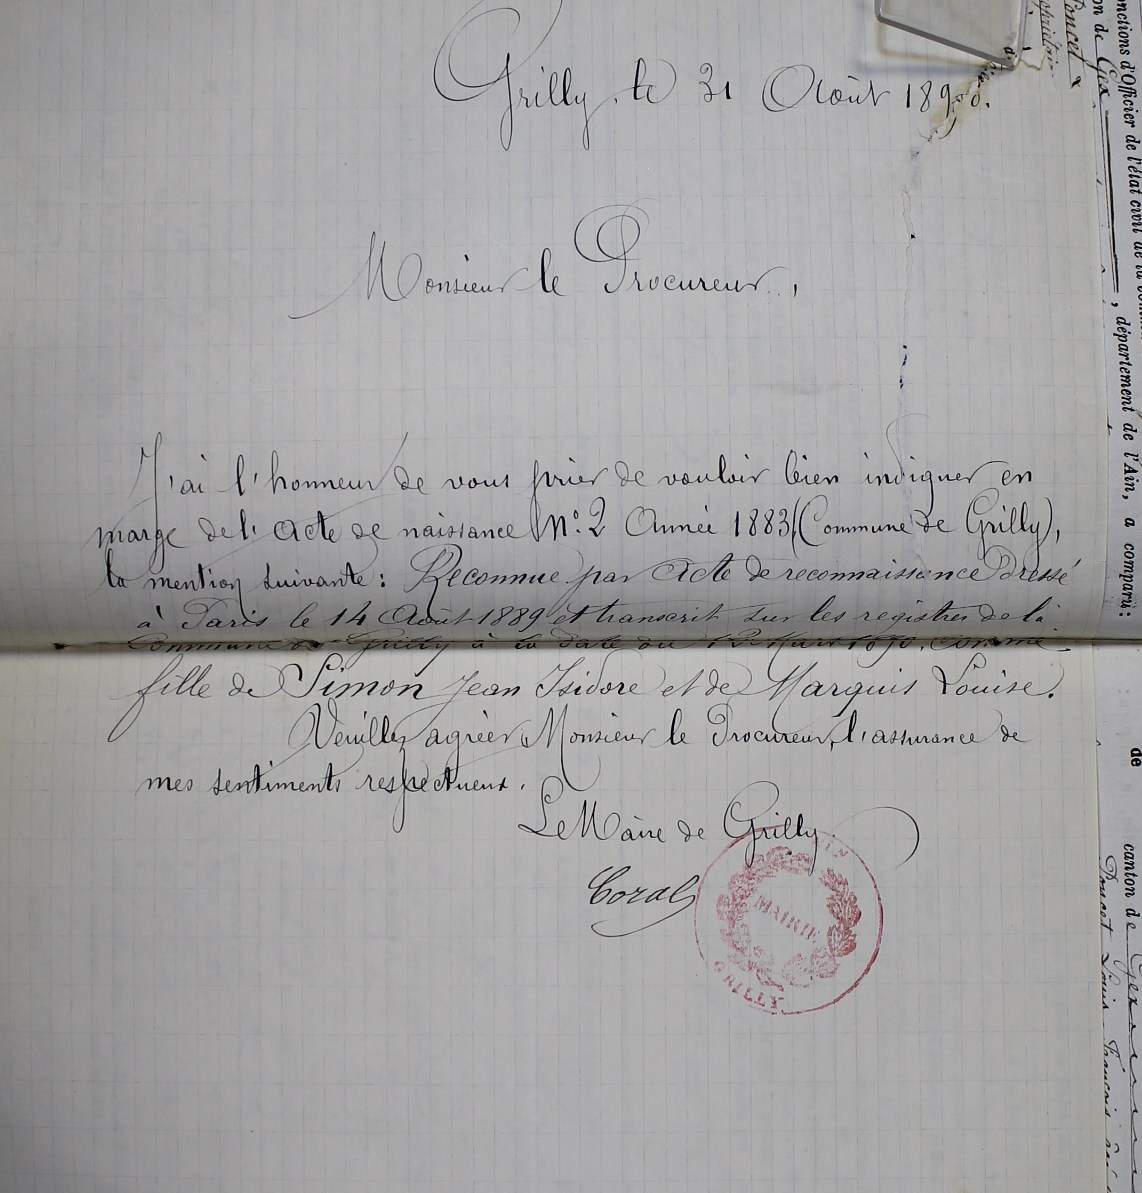 Grilly, le 31 Août 1890.
Monsieur le Procureur,
J'ai l'honneur de vous prier de vouloir bien indiquer en
marge de l'acte de naissance N° 2 Année 1883 (Commune de Grilly),
la mention suivante : Reconnue par acte de reconnaissance dressé
à Paris le 14 Août 1889 et transcrit sur les registres de la
Commune de Grilly à la date du 12 Mars 1890, comme
fille de Simon Jean Isidore et de Marquis Louise.
Veuillez agréer, Monsieur le Procureur, l'assurance de
mes sentiments respectueux.
Le Maire de Grilly
MAIRIE
GRILLY
nctions d'Officier de l'état civil de la
on de Gex
, département de l'Ain, a comparu:
Poncet
de
canton de Gex
Poncet Louis François